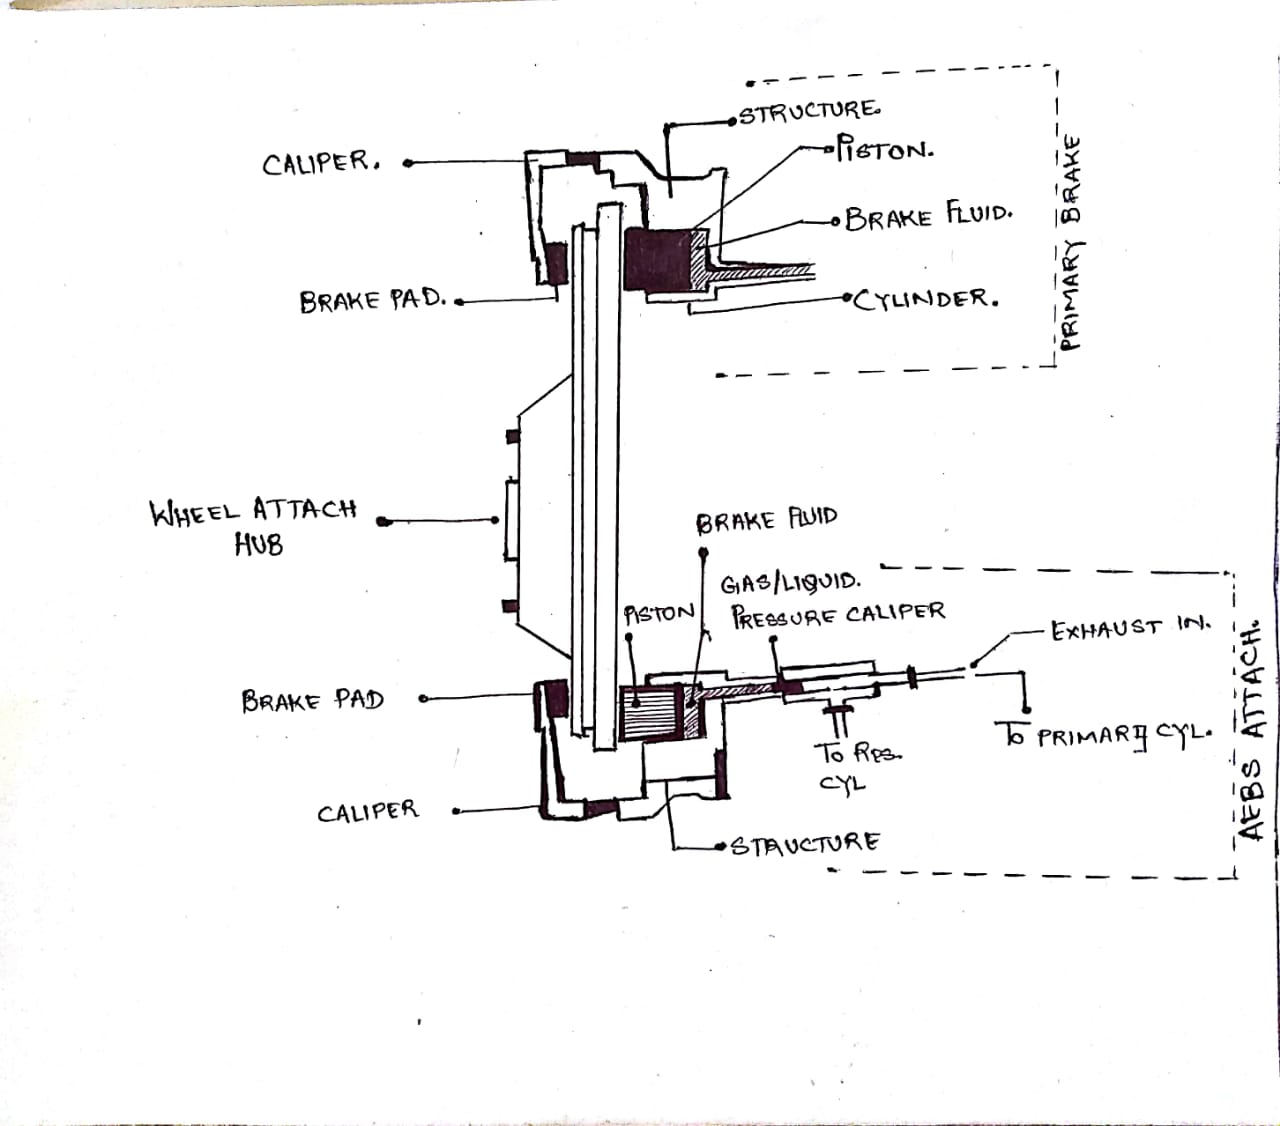 STRUCTURE.
CALIPER.
PISTON.
BRAKE FLUID.
BRAKE PAD.
CYLINDER.
PRIMARY BRAKE
WHEEL ATTACH
HUB
BRAKE FLUID
GAS/LIQUID.
PISTON
PRESSURE CALIPER
EXHAUST IN.
BRAKE PAD
TO PRIMARY CYL.
TO RES.
CYL
CALIPER
STRUCTURE
AEBS ATTACH.